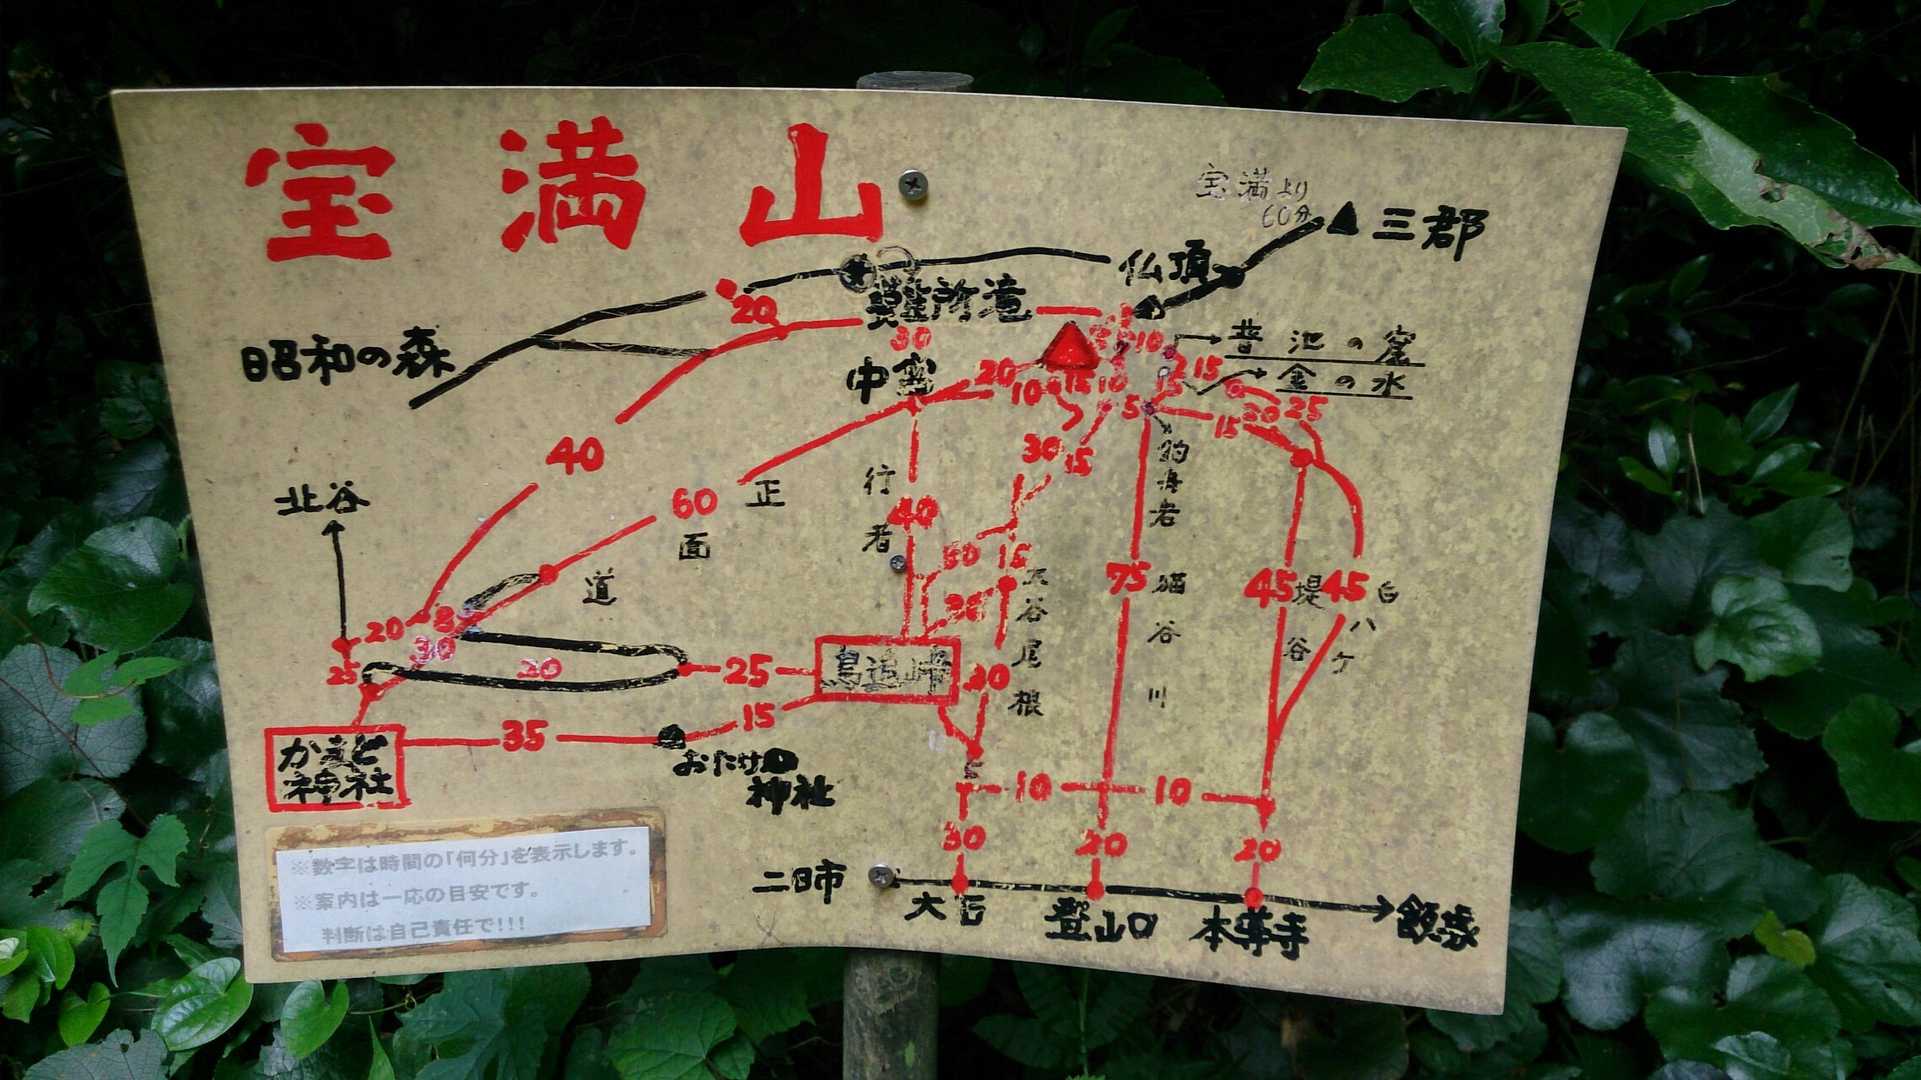 宝満山
宝満より
60分
三郡
仏頂
難所滝
20
昭和の森
30
中宮
10
昔池の窟
15
金の水
20
10
15
10
15
5
15
30
25
40
30
15
釣舟岩
北谷
60
正面道
行者
40
50
15
75
猫谷川
45
堤谷
45
白ハケ
20
8
30
25
20
25
鳥追峠
20
30
大谷尾根
かまど
神社
35
15
おたけの
神社
10
10
30
20
20
二日市
大石
登山口
本導寺
※数字は時間の「何分」を表示します。
※案内は一応の目安です。
判断は自己責任で!!!